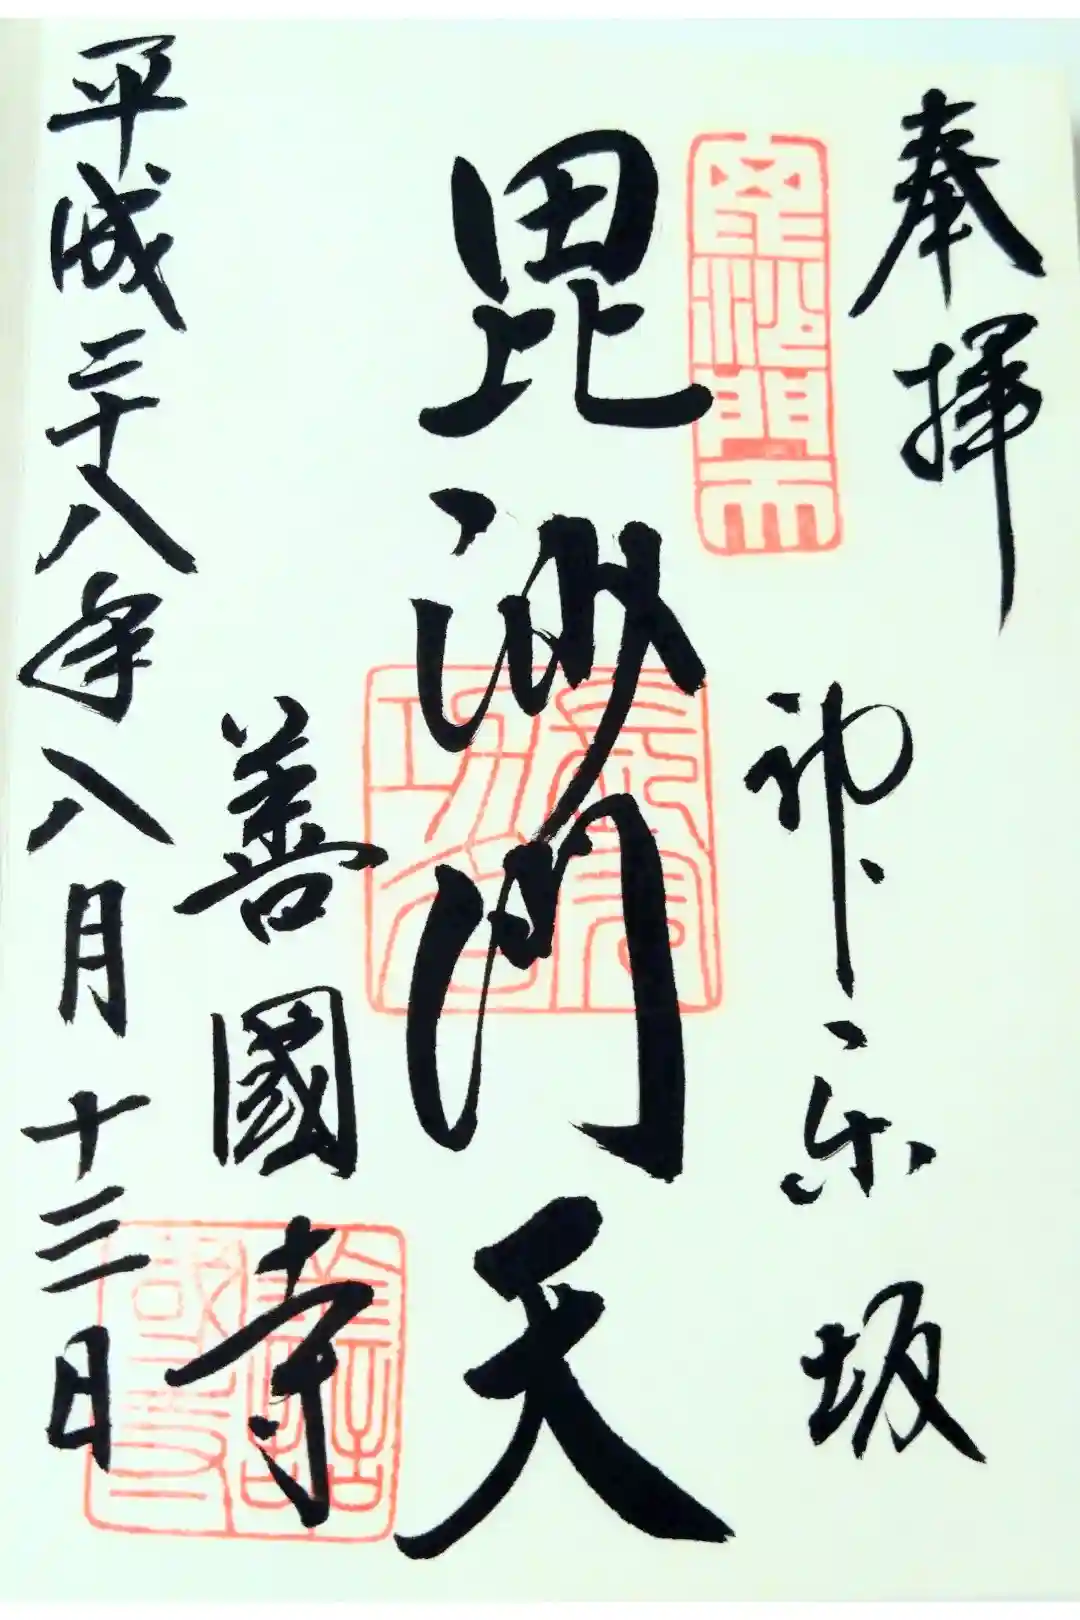 奉拝
神楽坂
毘沙門天
毘沙門天
善國寺
平成二十八年八月十三日